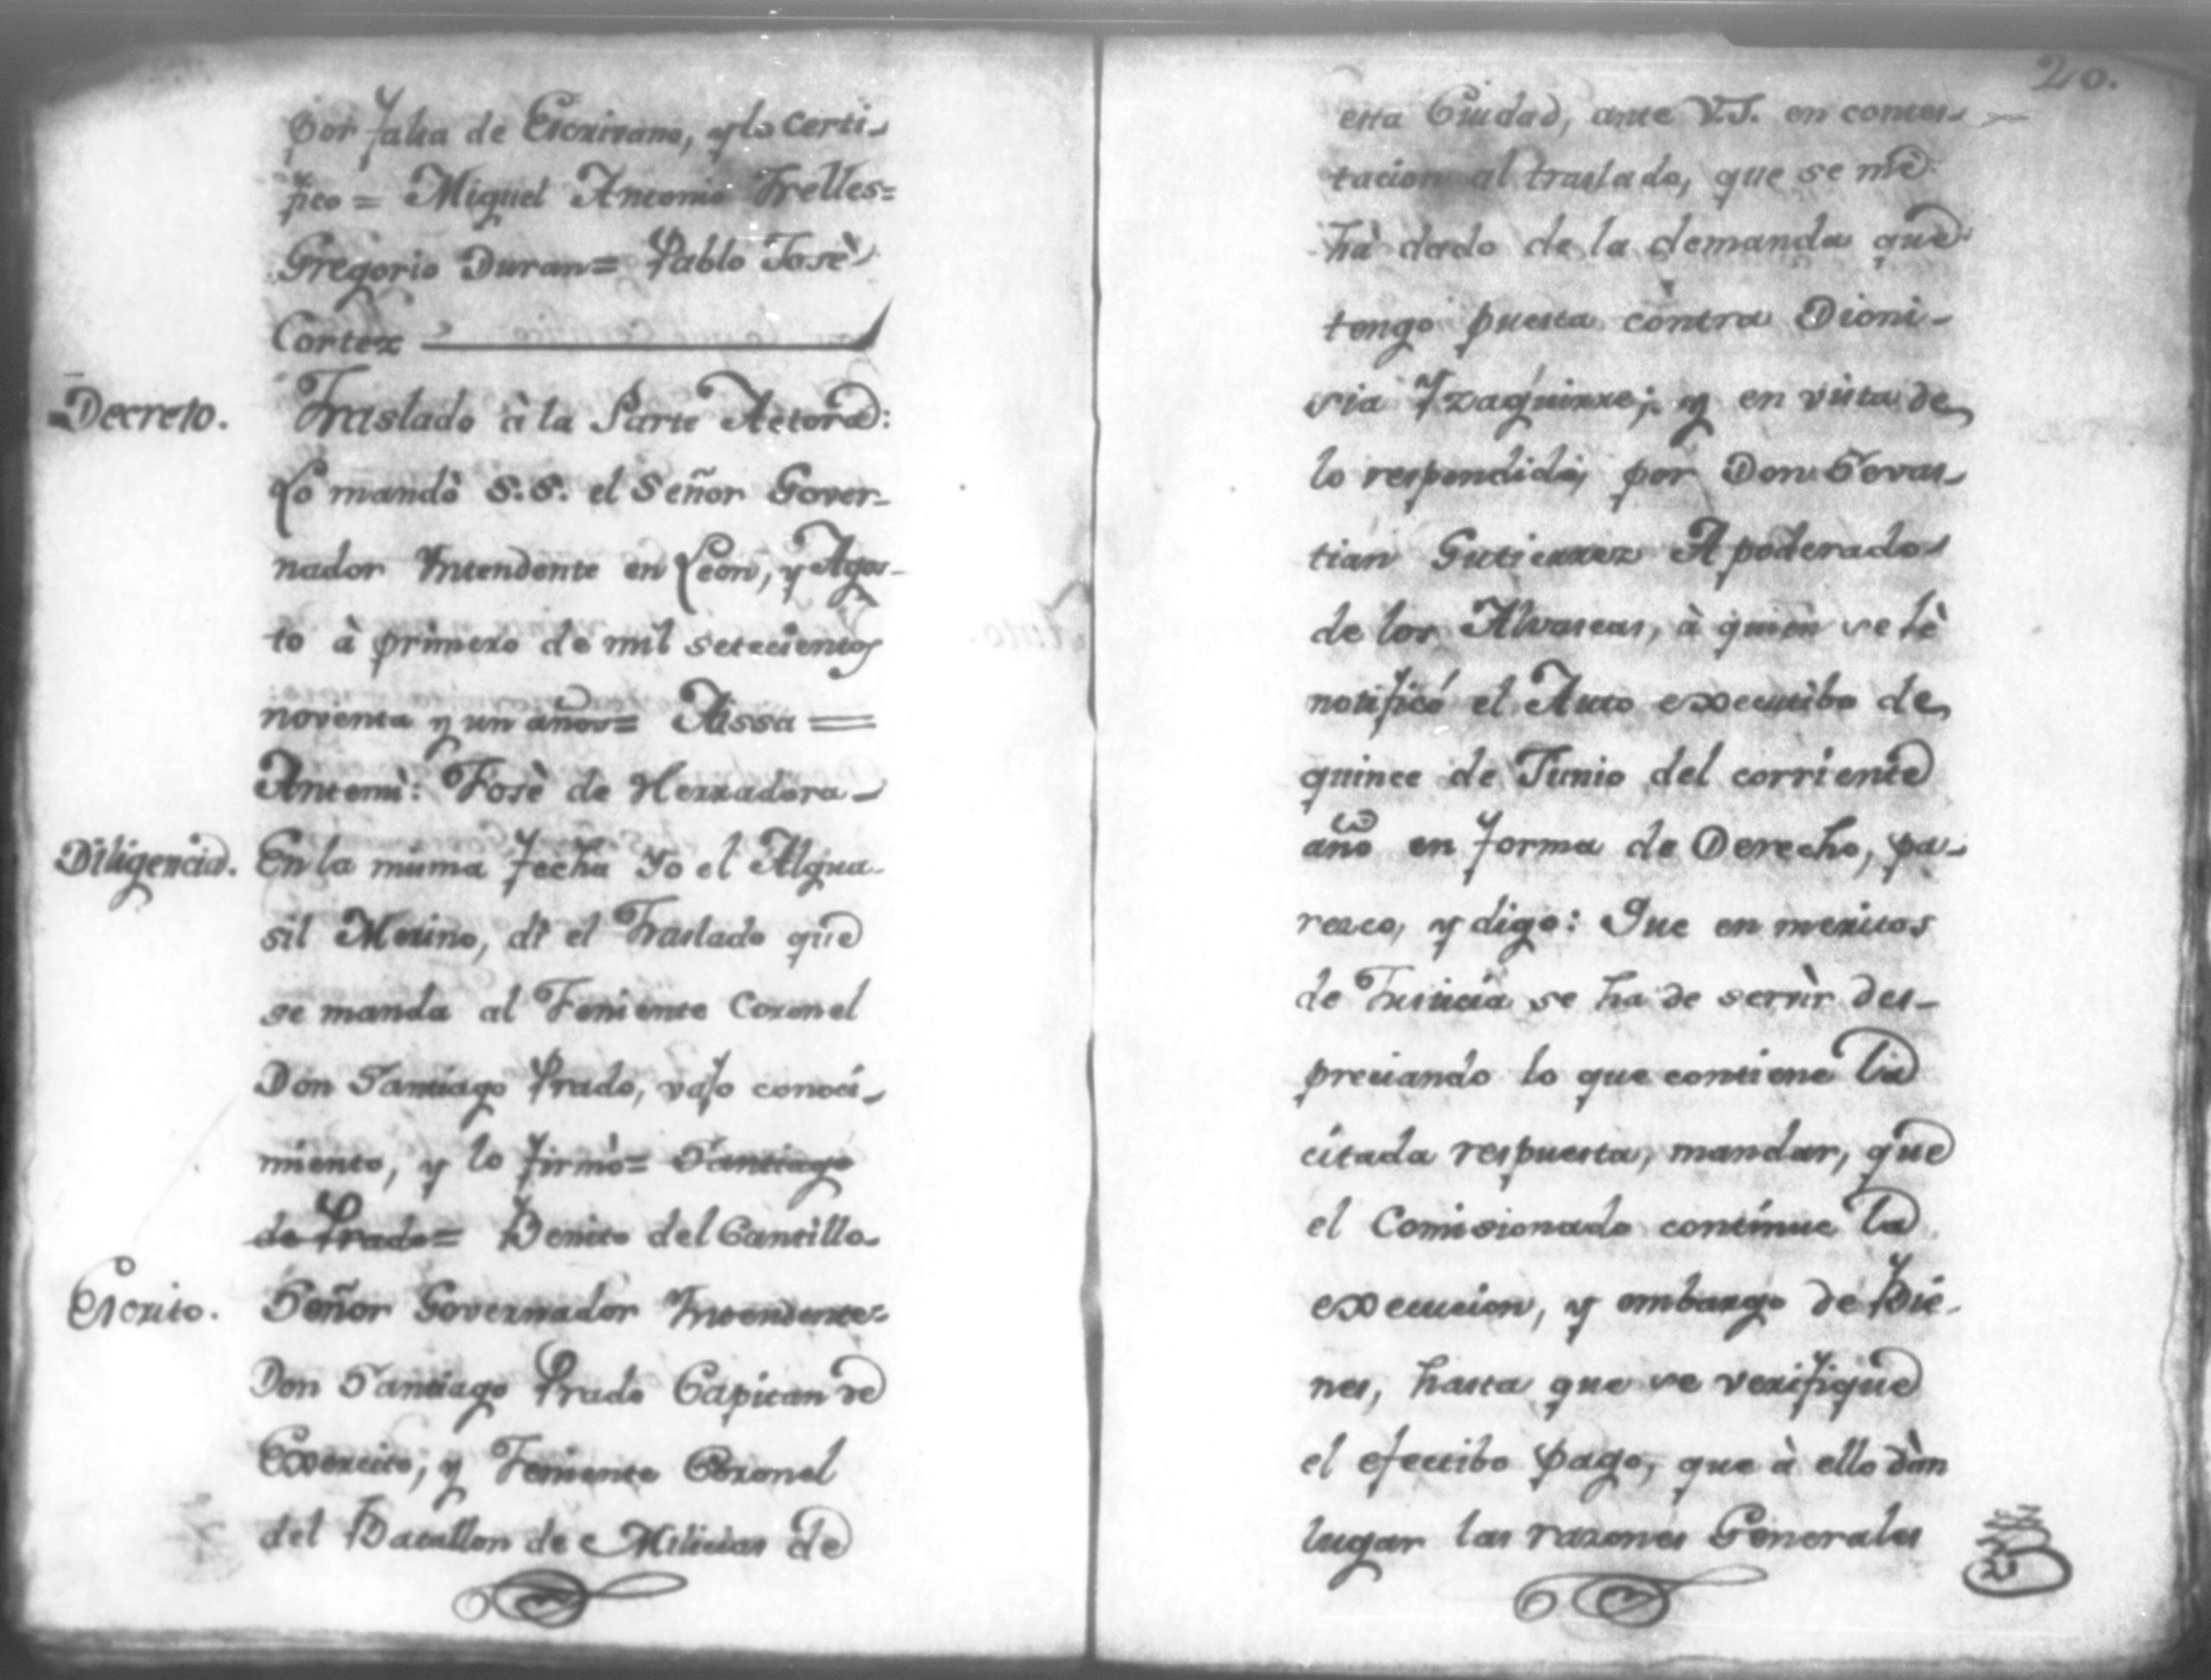 por falta de Escrivano, y lo certi-
fico = Miguel Antonio Trelles=
Gregorio Duran= Pablo Josè
Cortez
Decreto. Traslado à la Parte Actora:
Lo mandò S.S. el Señor Gover-
nador Intendente en Leon, y Agos-
to à primero de mil setecientos
noventa y un años= Aissa =
Antemì: Josè de Herradora
Diligencia. En la misma fecha Yo el Algua-
sil Merino, dì el Traslado que
se manda al Teniente Coronel
Don Santiago Prado, vajo conoci-
miento, y lo firmò= Santiago
de Prado= Benito del Cantillo
Escrito. Señor Governador Intendente=
Don Santiago Prado Capitan de
Exercito; y Teniente Coronel
del Batallon de Milicias de
20.
esta Ciudad, ante V.S. en contes-
tacion al traslado, que se me
hà dado de la demanda que
tengo puesta contra Dioni-
sia Yzaguirre; y en vista de
lo respondido, por Don Sevas-
tian Gutierrez Apoderado
de los Alvaseas, à quien se lè
notificó el Auto executibo de
quince de Junio del corriente
año en forma de Derecho, pa-
rezco, y digo: Que en meritos
de Justicia se ha de servir des-
preciando lo que contiene la
citada respuesta, mandar, que
el Comisionado contínue la
execucion, y embargo de Bie-
nes, hasta que se verifique
el efectibo pago, que à ello dàn
lugar las razones Generales